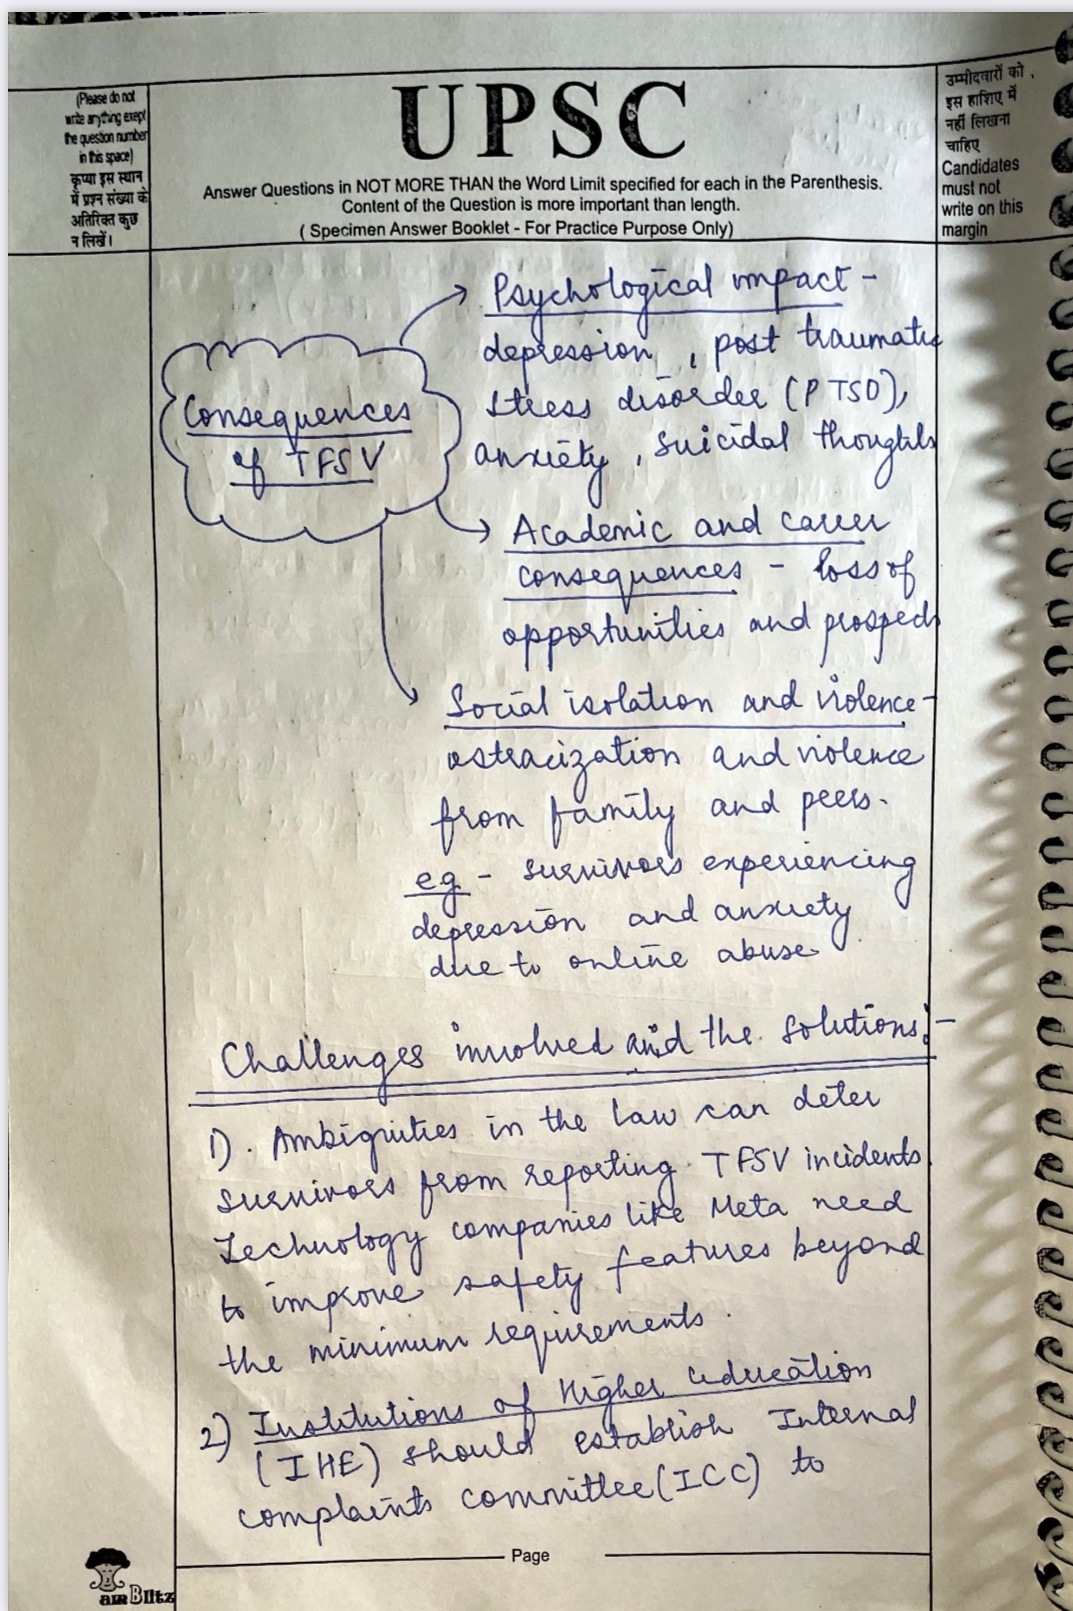 (Please do not
write anything exept
the question number
in this space)
कृप्या इस स्थान
में प्रश्न संख्या के
अतिरिक्त कुछ
न लिखें।
UPSC
Answer Questions in NOT MORE THAN the Word Limit specified for each in the Parenthesis.
Content of the Question is more important than length.
( Specimen Answer Booklet - For Practice Purpose Only)
उम्मीदवारों को
इस हाशिए में
नहीं लिखना
चाहिए
Candidates
must not
write on this
margin
Consequences
of TFSV
Psychological impact -
depression, post traumatic
stress disorder (PTSD),
anxiety, suicidal thoughts
Academic and career
consequences - loss of
opportunities and prospects
Social isolation and violence -
ostracization and violence
from family and peers.
eg - survivors experiencing
depression and anxiety
due to online abuse
Challenges involved and the solutions:-
1). Ambiguities in the law can deter
survivors from reporting TFSV incidents
Technology companies like Meta need
to improve safety features beyond
the minimum requirements.
2) Institutions of Higher education
(IHE) should establish Internal
complaints committee (ICC) to
Page
amBlitz